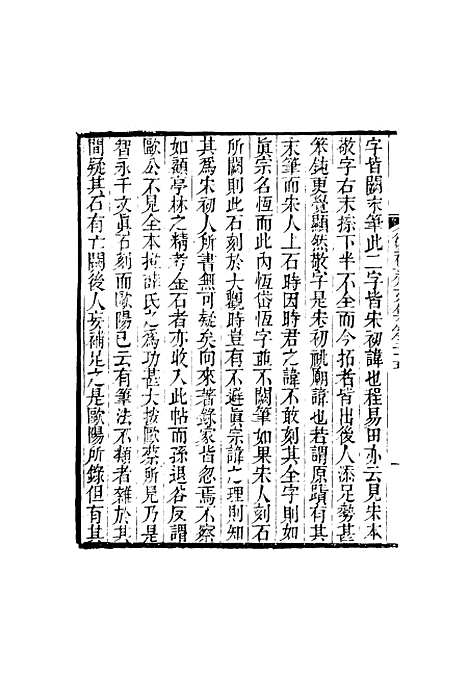 字皆闕末筆此二字皆宋初諱也程易田亦云見宋本
敬字右末捺下半不全而今拓者皆出後人添足勢甚
笨鈍更覺顯然敬字是宋初祧廟諱也若謂原蹟有其
末筆而宋人上石時因時君之諱不敢刻其全字則如
眞宗名恆而此內恆岱恆字並不闕筆如果宋人刻石
所闕則此石刻於大觀時豈有不避眞宗諱之理則知
其爲宋初人所書無可疑矣向來著錄家皆忽焉不察
如顧亭林之精考金石者亦收入此帖而孫退谷反謂
歐公不見全本拉薛氏之爲功甚大按歐公所見乃是
智永千文眞石刻而歐陽已云有筆法不類者雜於其
間疑其石有亡闕後人妄補足之是歐陽所錄但有其